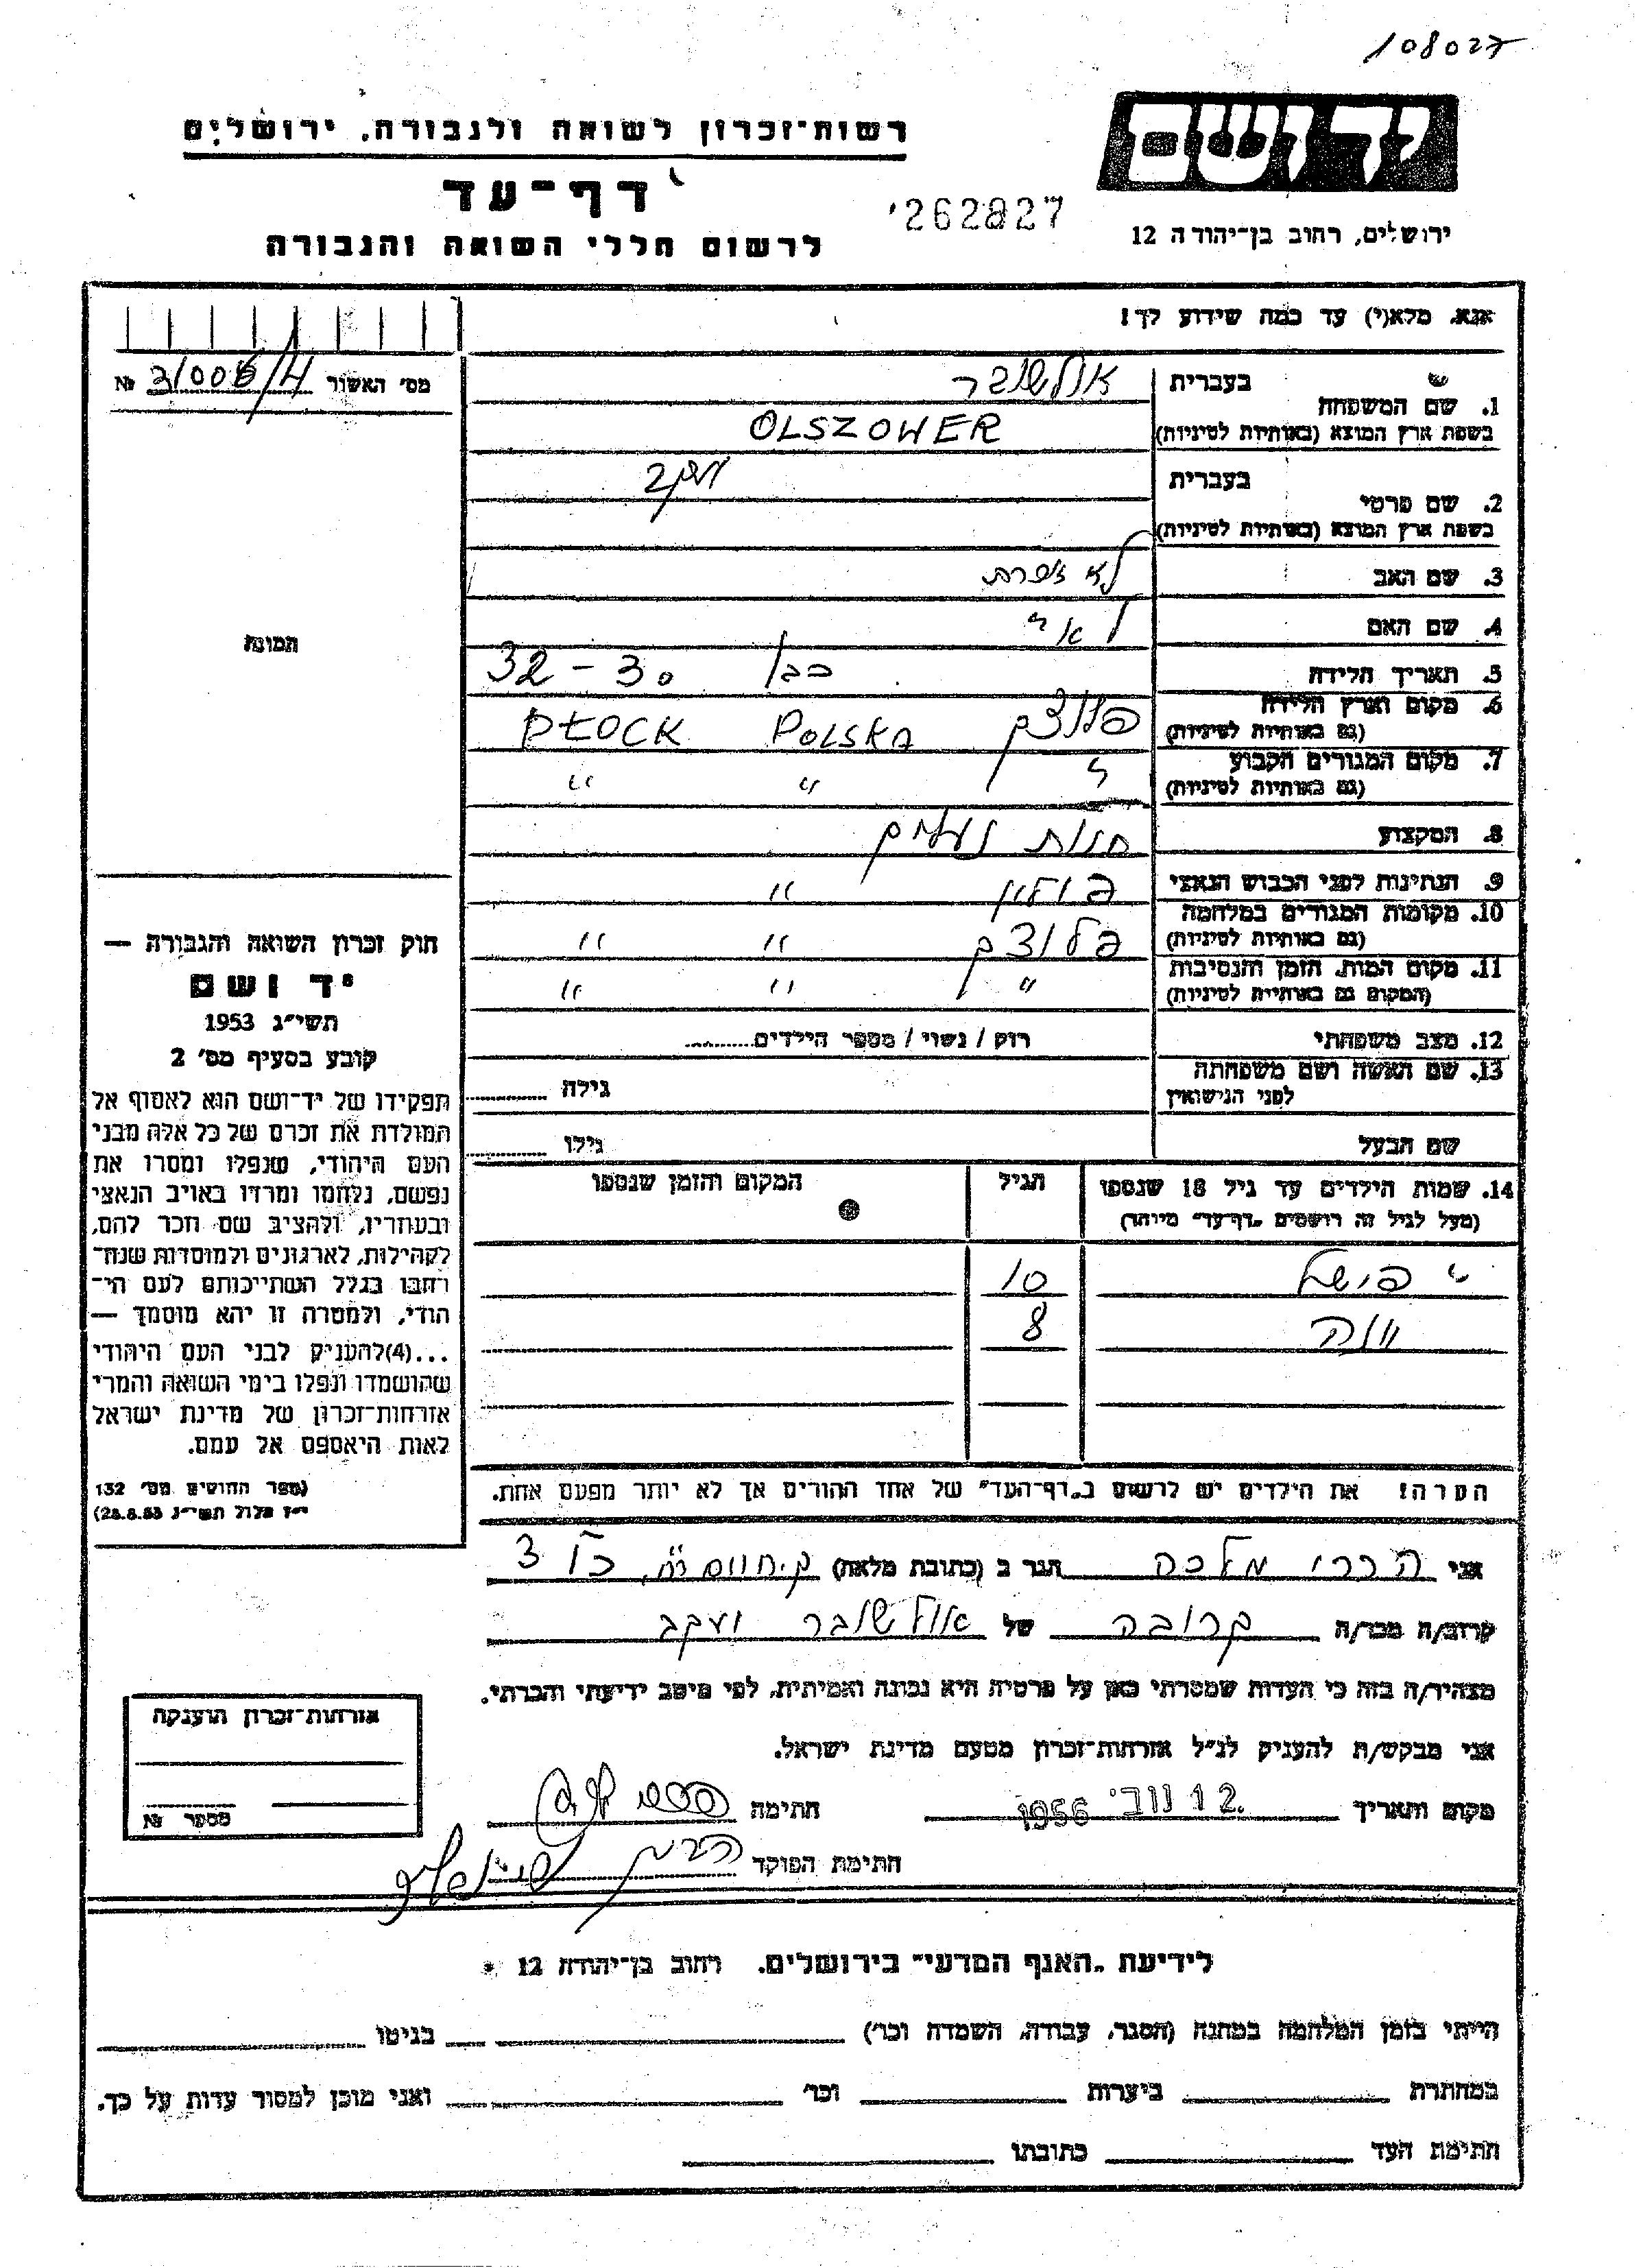 108027
יד ושם
רשות־זכרון לשואה ולגבורה, ירושלים
דף־עד
262827
ירושלים, רחוב בן־יהודה 12
לרשום חללי השואה והגבורה
אנא, מלא(י) עד כמה שידוע לך!
מס' האשור 31006/4 №
1. שם המשפחה
בעברית אולשובר
בשפת ארץ המוצא (באותיות לטיניות) OLSZOWER
2. שם פרטי
בעברית יעקב
בשפת ארץ המוצא (באותיות לטיניות)
3. שם האב לא
4. שם האם לא
5. תאריך הלידה כבן 30 - 32
6. מקום וארץ הלידה
(גם באותיות לטיניות) פלוצק POLSKA PŁOCK
7. מקום המגורים הקבוע
(גם באותיות לטיניות) " " "
8. המקצוע חנות נעלים
9. הנתינות לפני הכבוש הנאצי פולין "
10. מקומות המגורים במלחמה
(גם באותיות לטיניות) פלוצק " "
11. מקום המות, הזמן והנסיבות
(המקום גם באותיות לטיניות) " " "
12. מצב משפחתי רווק / נשוי / מספר הילדים
13. שם האשה ושם משפחתה
לפני הנישואין גילה
שם הבעל גילו
14. שמות הילדים עד גיל 18 שנספו הגיל המקום והזמן שנספו
(מעל לגיל זה רושמים "דף־עד" מיוחד)
פישל 10
יונה 8
הערה! את הילדים יש לרשום ב"דף־העד" של אחד ההורים אך לא יותר מפעם אחת.
תמונה
חוק זכרון השואה והגבורה —
יד ושם
תשי"ג 1953
קובע בסעיף מס' 2
תפקידו של יד־ושם הוא לאסוף אל
המולדת את זכרם של כל אלה מבני
העם היהודי, שנפלו ומסרו את
נפשם, נלחמו ומרדו באויב הנאצי
ובעוזריו, ולהציב שם וזכר להם,
לקהילות, לארגונים ולמוסדות שנח־
רבו בגלל השתייכותם לעם הי־
הודי, ולמטרה זו יהא מוסמך —
...(4)להעניק לבני העם היהודי
שהושמדו ונפלו בימי השואה והמרי
אזרחות־זכרון של מדינת ישראל
לאות היאספם אל עמם.
(ספר החוקים מס' 132
י"ז אלול תשי"ג 28.8.53)
אני מלכה הגר ב (כתובת מלאה) 3
קרוב/ה מכר/ה קרובה של אולשובר יעקב
מצהיר/ה בזה כי העדות שמסרתי כאן על פרטיה היא נכונה ואמיתית, לפי מיטב ידיעתי והכרתי.
אני מבקש/ת להעניק לנ"ל אזרחות־זכרון מטעם מדינת ישראל.
מקום ותאריך 12 נוב' 1956 חתימה
חתימת הפוקד
אזרחות־זכרון הוענקה
מספר №
לידיעת "האגף המדעי" בירושלים. רחוב בן־יהודה 12
הייתי בזמן המלחמה במחנה (הסגר, עבודה, השמדה וכו') בגיטו
במחתרת ביערות וכו' ואני מוכן למסור עדות על כך.
חתימת העד כתובתו